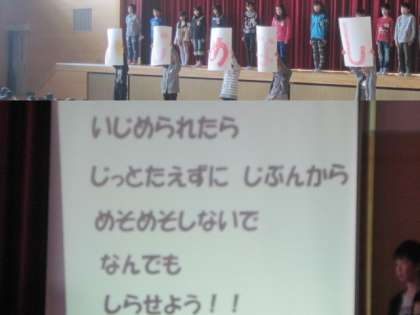 いじめなし
いじめられたら
じっとたえずに じぶんから
めそめそしないで
なんでも
しらせよう！！